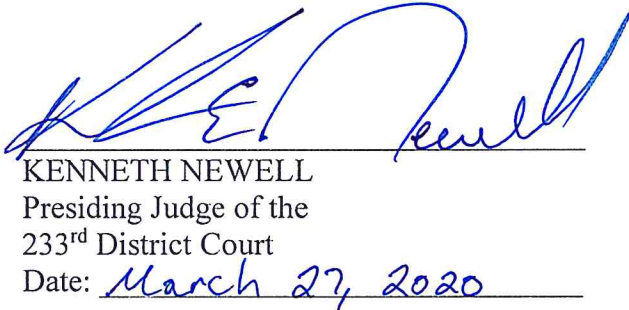 K E Newell
KENNETH NEWELL
Presiding Judge of the
233rd District Court
Date: March 27, 2020